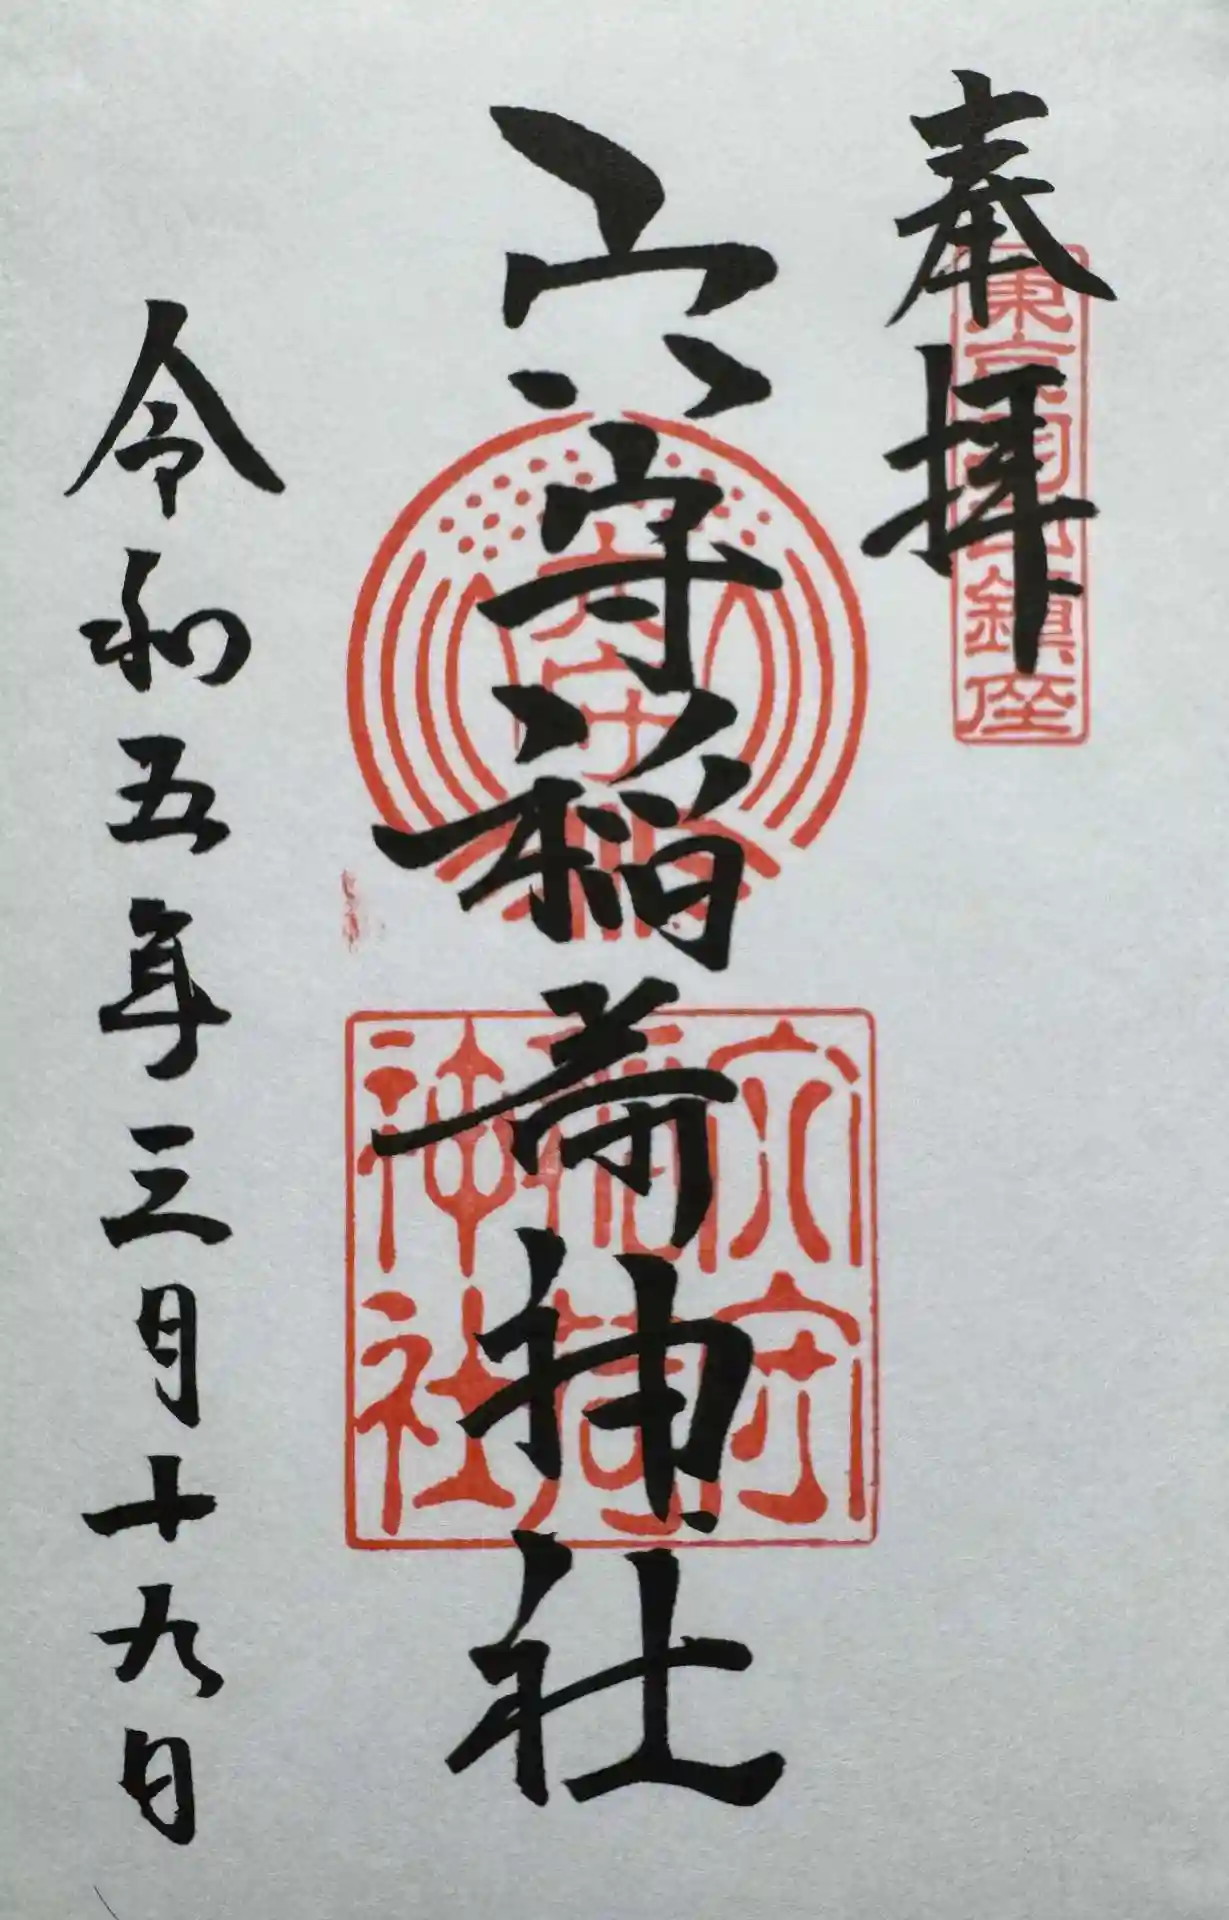 奉拝
東京羽田鎮座
穴守稲荷神社
穴守
穴守稲荷神社
令和五年三月十九日